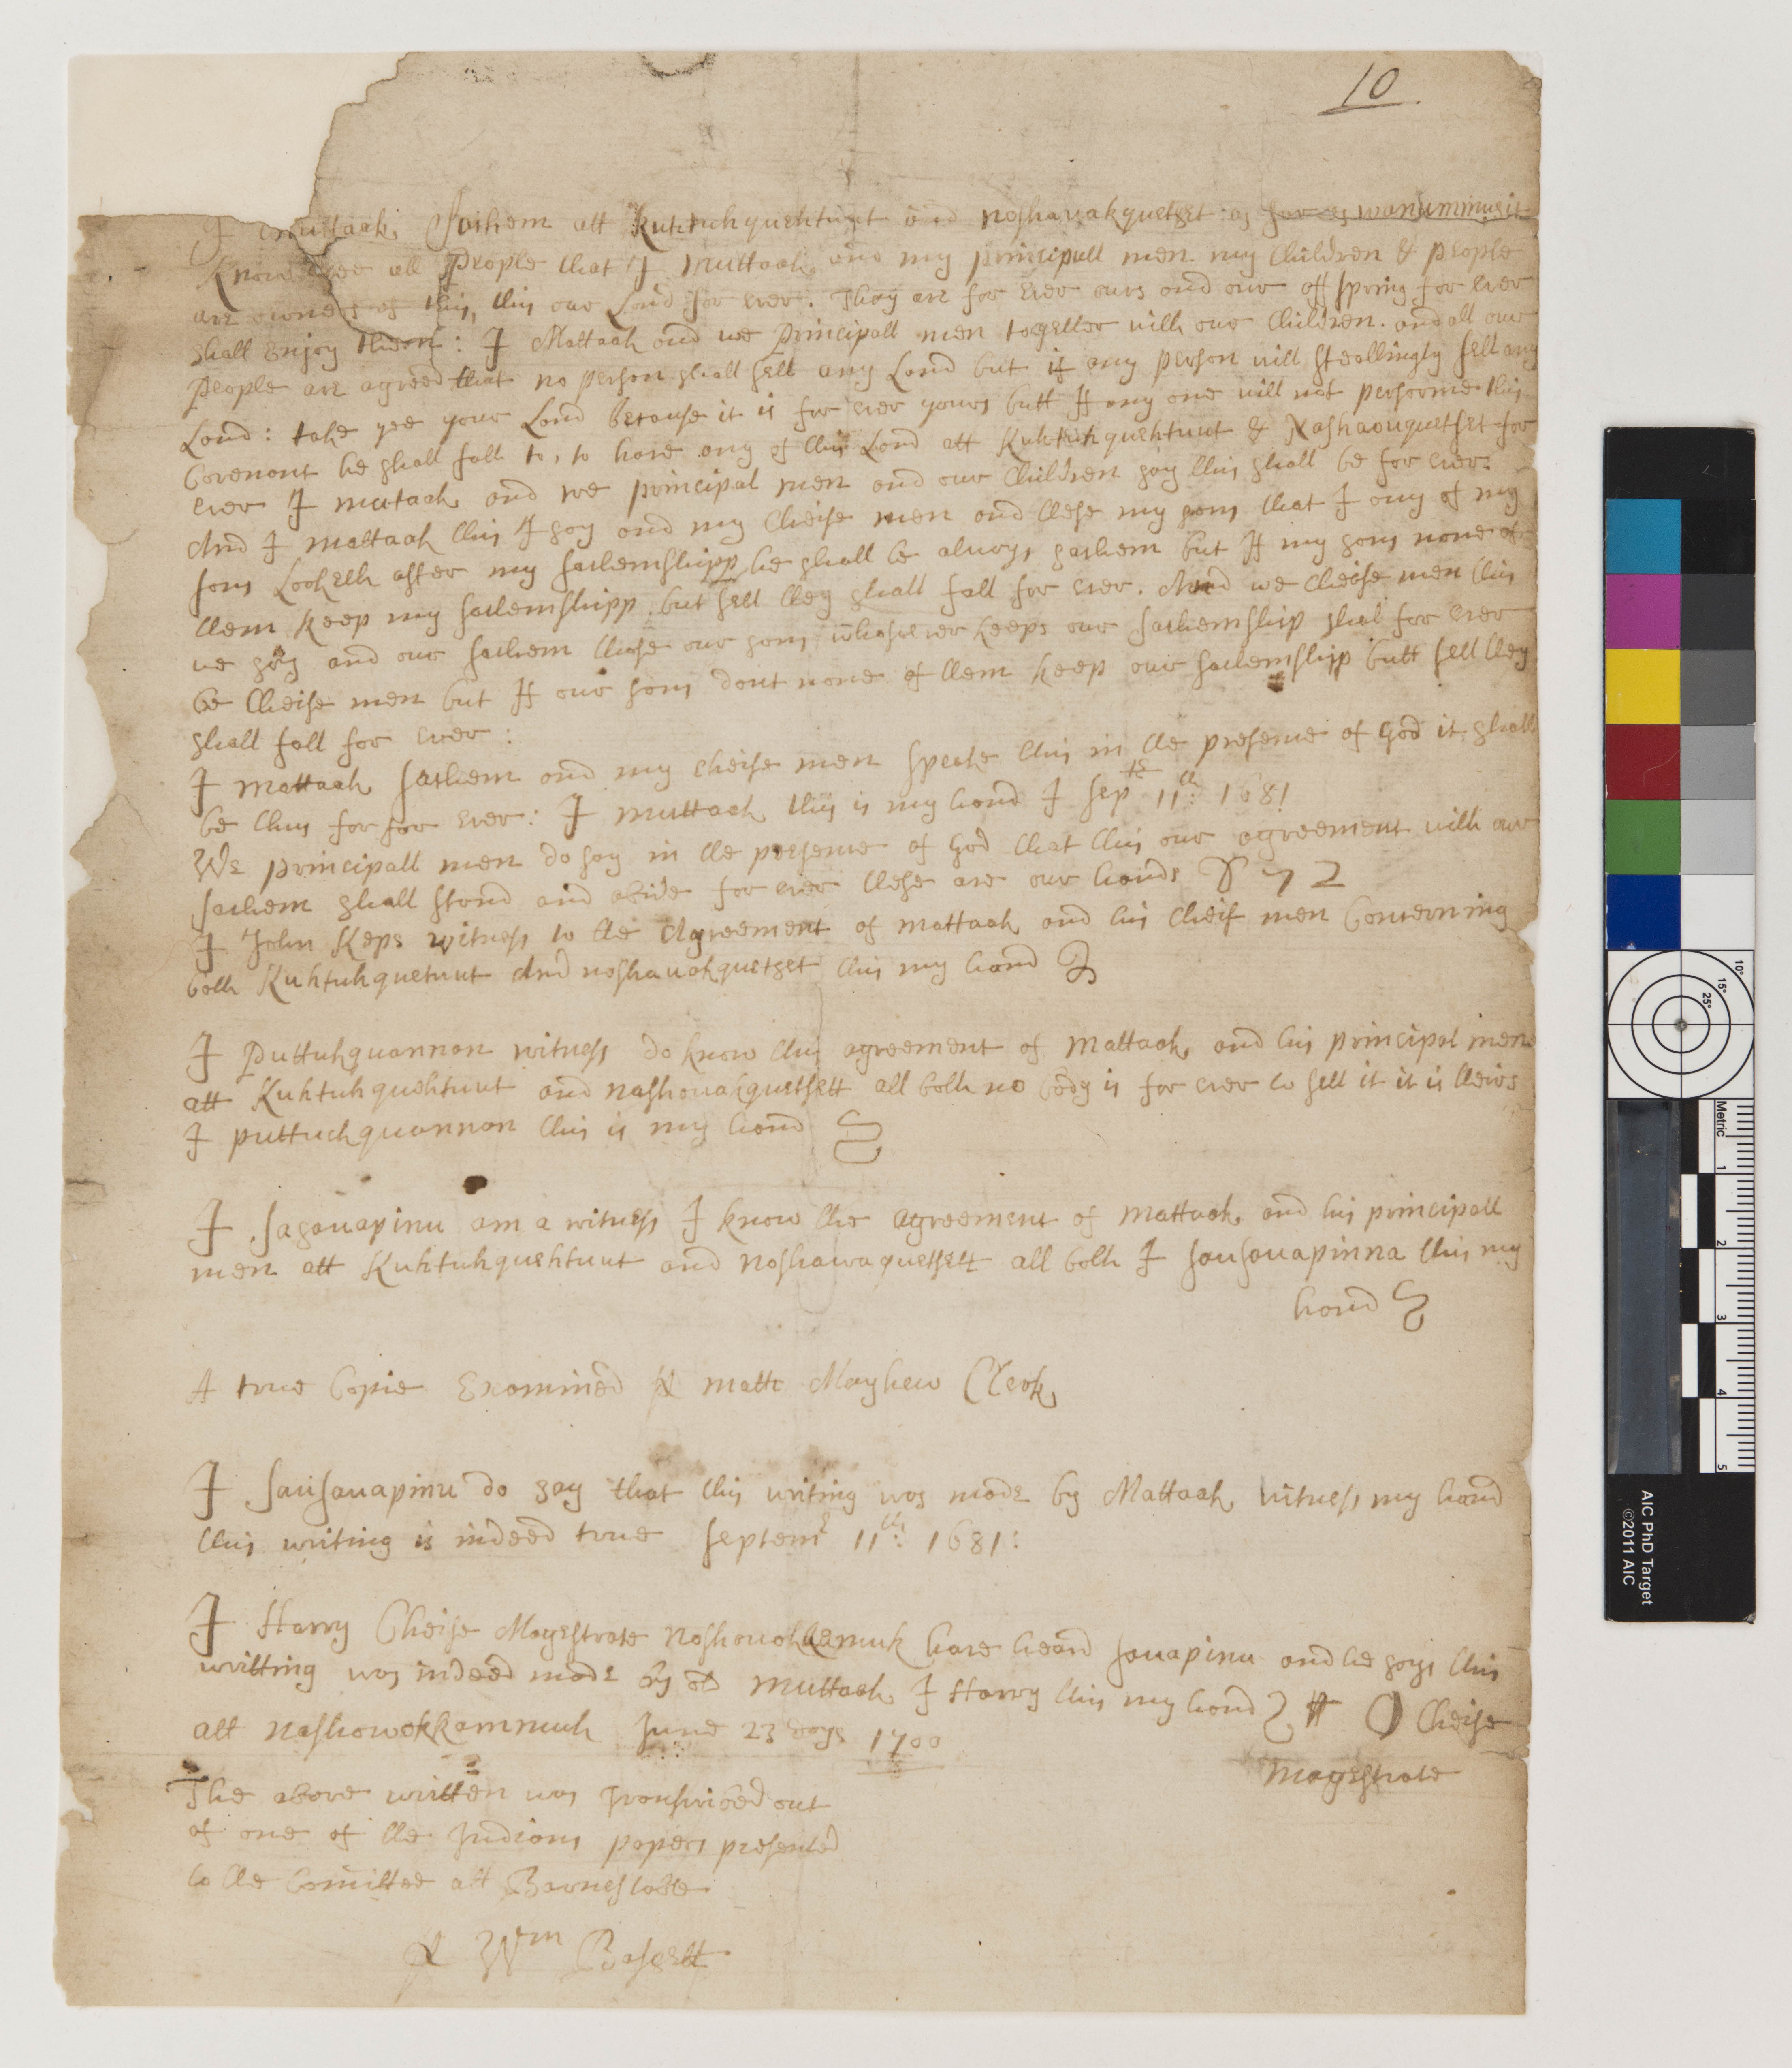 10
I muttaak Sachem att Kuhtuhquehtuut and noshauakquetset as far as wanumminusit
Know yee all People that I muttaak and my principall men my Children & people
are owners of this, this our Land for ever. They are for ever ours and our off spring for ever
shall enjoy them: I Mattaak and we principall men together with our Children. and all our
people are agreed that no person shall sell any Land but if any person will steallingly sell any
Land: take yee your Land because it is for ever yours butt If any one will not performe this
Covenant he shall fall to, to have any of this Land att Kuhtuhquehtuut & Nashaouquetset for
ever I mutaak and we principal men and our Children say this shall be for ever.
And I mattaak this I say and my Cheife men and these my sons that I any of my
sons Looketh after my sachemshipp he shall be always sachem but If my sons none of
them keep my sachemshipp. but sell they shall fall for ever. And we Cheife men this
we say and our sachem those our sons whosoever keeps our sachemship shal for ever
be Cheife men but If our sons dont none of them keep our sachemshipp butt sell they
shall fall for ever:
I mattaak sachem and my cheife men speake this in the presence of God it shall
be thus for for ever: I muttaak this is my hand I sept 11th: 1681
We principall men do say in the presence of God that this our agreement with our
sachem shall stand and abide for ever these are our hands
I John Keps witness to the Agreement of mattaak and his Cheif men Concerning
both Kuhtuhquetuut And noshauakquetset this my hand
I Puttuhquannan witness do know this agreement of mattaak and his principal men
att Kuhtuhquehtuut and nashouakquetsett all both no body is for ever to sell it it is theirs
I puttuchquannan this is my hand
I sasauapinu am a witness I know the agreement of mattaak and his principall
men att Kuhtuhquehtuut and noshawaquetsett all both I sausauapinna this my
hand
A true Copie Examined p matt Mayhew Clerk
I sausauapinu do say that this writing was made by Mattaak witness my hand
this writing is indeed true septemr 11th: 1681:
I Harry Cheife Magestrate noshouohkamuk have heard sauapinu and he says this
writting was indeed made by old muttaak I Harry this my hand H Cheife
att nashowokkammuk June 23 days 1700
Magestrate
The above written was transcribed out
of one of the Indians papers presented
to the Comittee att Barnestable
p Wm Bassett